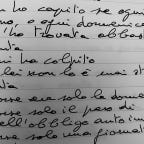 ho capito se ogni
no, o ogni domenica
l'ho trovata abbast
ata
mi ha colpito
lei non lo è mai st
ata
se era solo la dome
se solo il peso di
ell'obbligo autoim
se solo una giornat